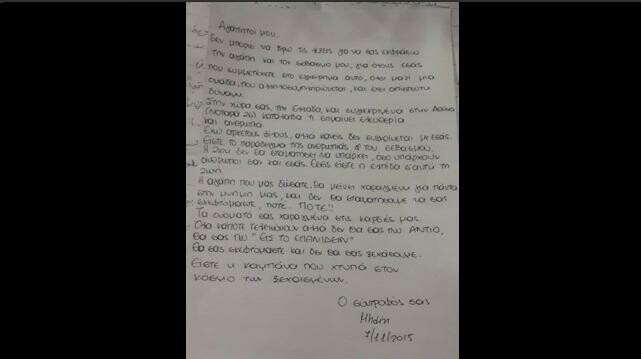 Αγαπητοί μου,
Δεν μπορώ να βρω τις λέξεις για να σας εκφράσω
την αγάπη και τον σεβασμό μου, για όλους εσάς
που συμμετέχετε στο εγχείρημα αυτό, όλοι μαζί μια
ομάδα, που αλληλοσυμπληρώνεται, και έχει απίστευτη
δύναμη.
Στην χώρα σας, την Ελλάδα, και συγκεκριμένα στην
(Νοταρά 26) κατάλαβα τι σημαίνει ελευθερία
και ανθρωπιά.
Έχω αρκετούς φίλους, αλλά κανείς δεν συγκρίνεται με εσάς.
Είστε το παράδειγμα της ανθρωπιάς του σεβασμού.
Η ζωή δεν θα σταματήσει να υπάρχει, όσο υπάρχουν
άνθρωποι σαν και εσάς. Εσείς είστε η ελπίδα σ'αυτή τη
ζωή.
Η αγάπη που μας δώσατε, θα μείνει χαραγμένη για πάντα
στη μνήμη μας, και δεν θα σταματήσουμε να σας
σκεφτόμαστε, ποτέ. ΠΟΤΕ!!
Τα ονόματά σας χαραγμένα στις καρδιές μας.
Όλα κάποτε τελειώνουν αλλά δεν θα σας πω ΑΝΤΙΟ,
θα σας πω "ΕΙΣ ΤΟ ΕΠΑΝΙΔΕΙΝ"
Θα σας σκεφτόμαστε και δεν θα σας ξεχάσουμε.
Είστε η καμπάνα που χτυπά στον
κόσμο των ξεχασμένων.
Ο σύντροφός σας
7/11/2015